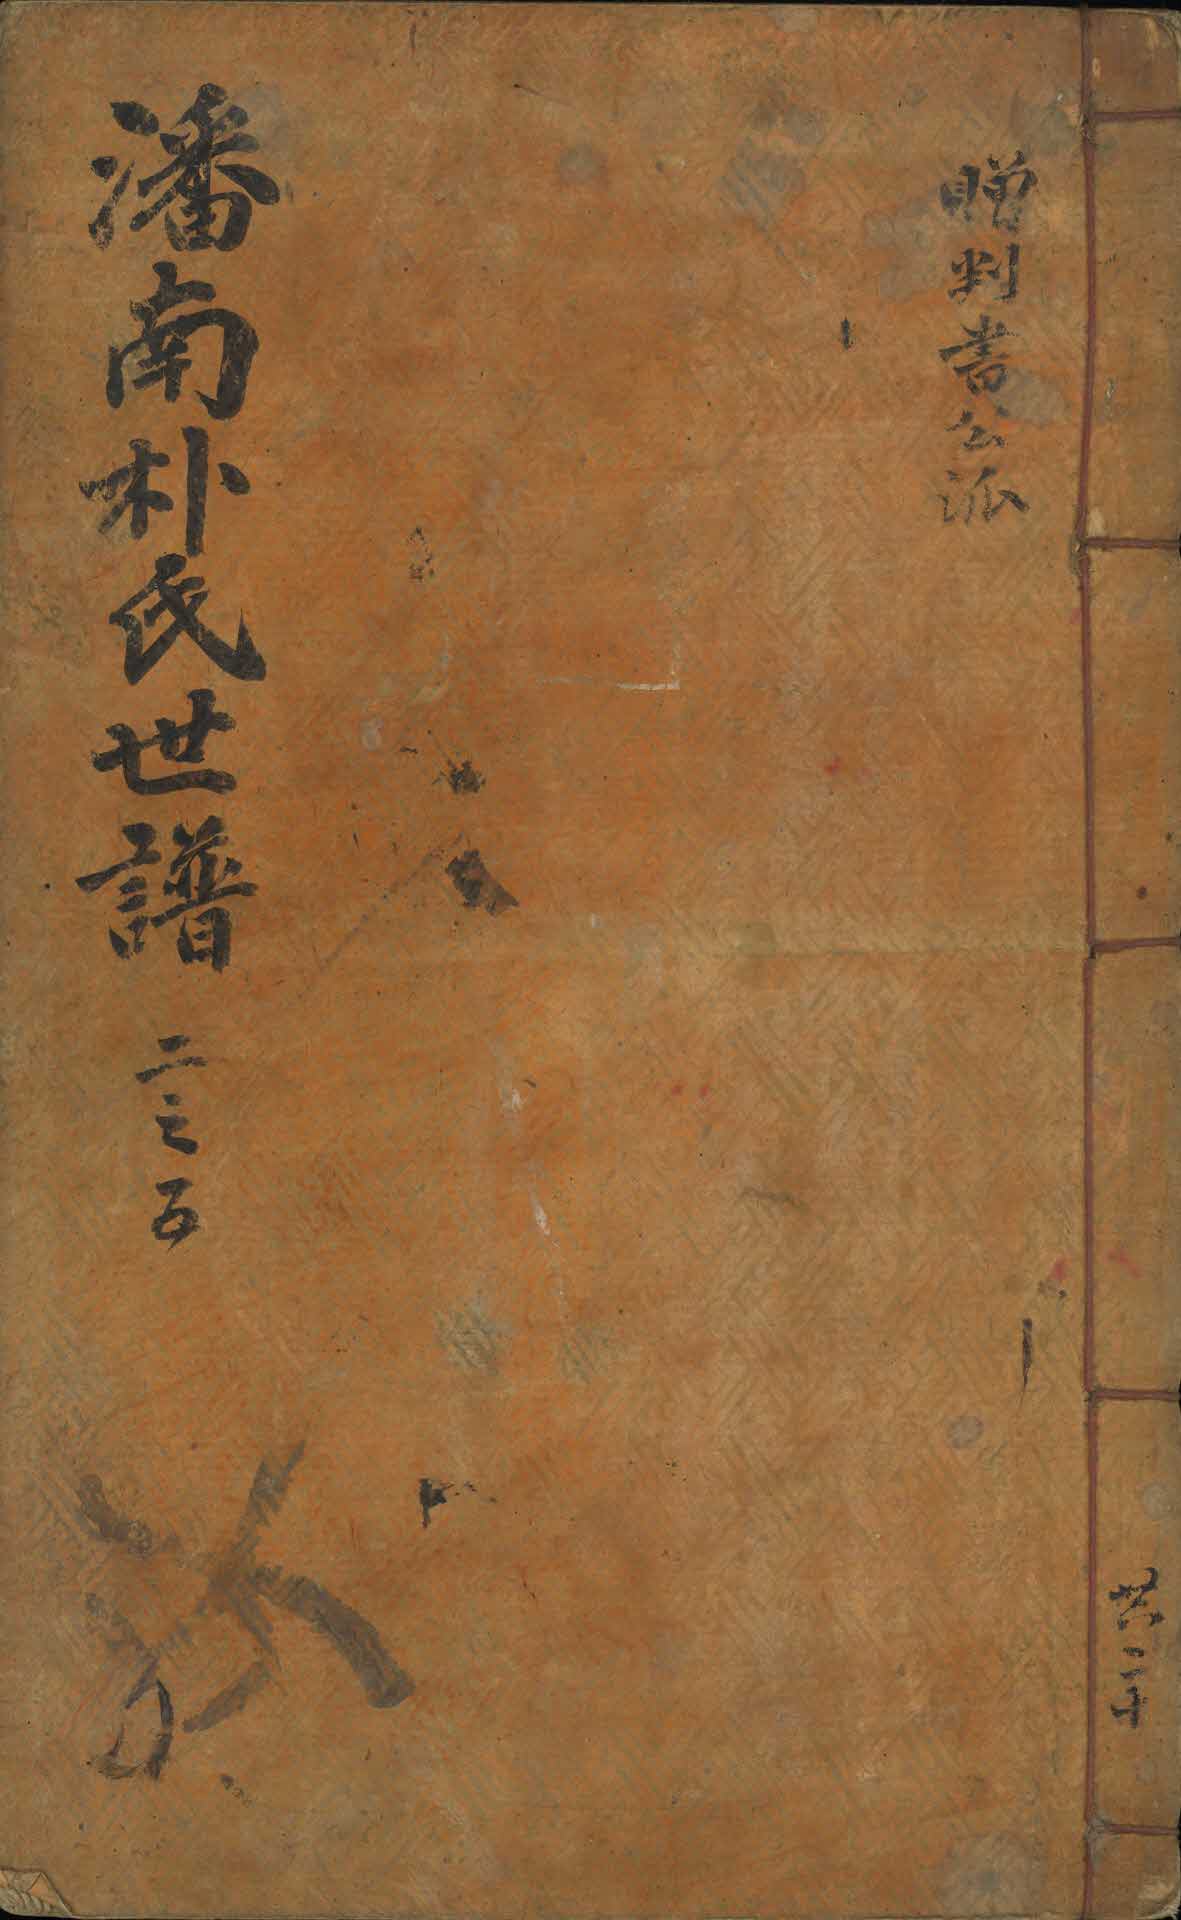 贈判書公派
潘南朴氏世譜 二之五
共二十